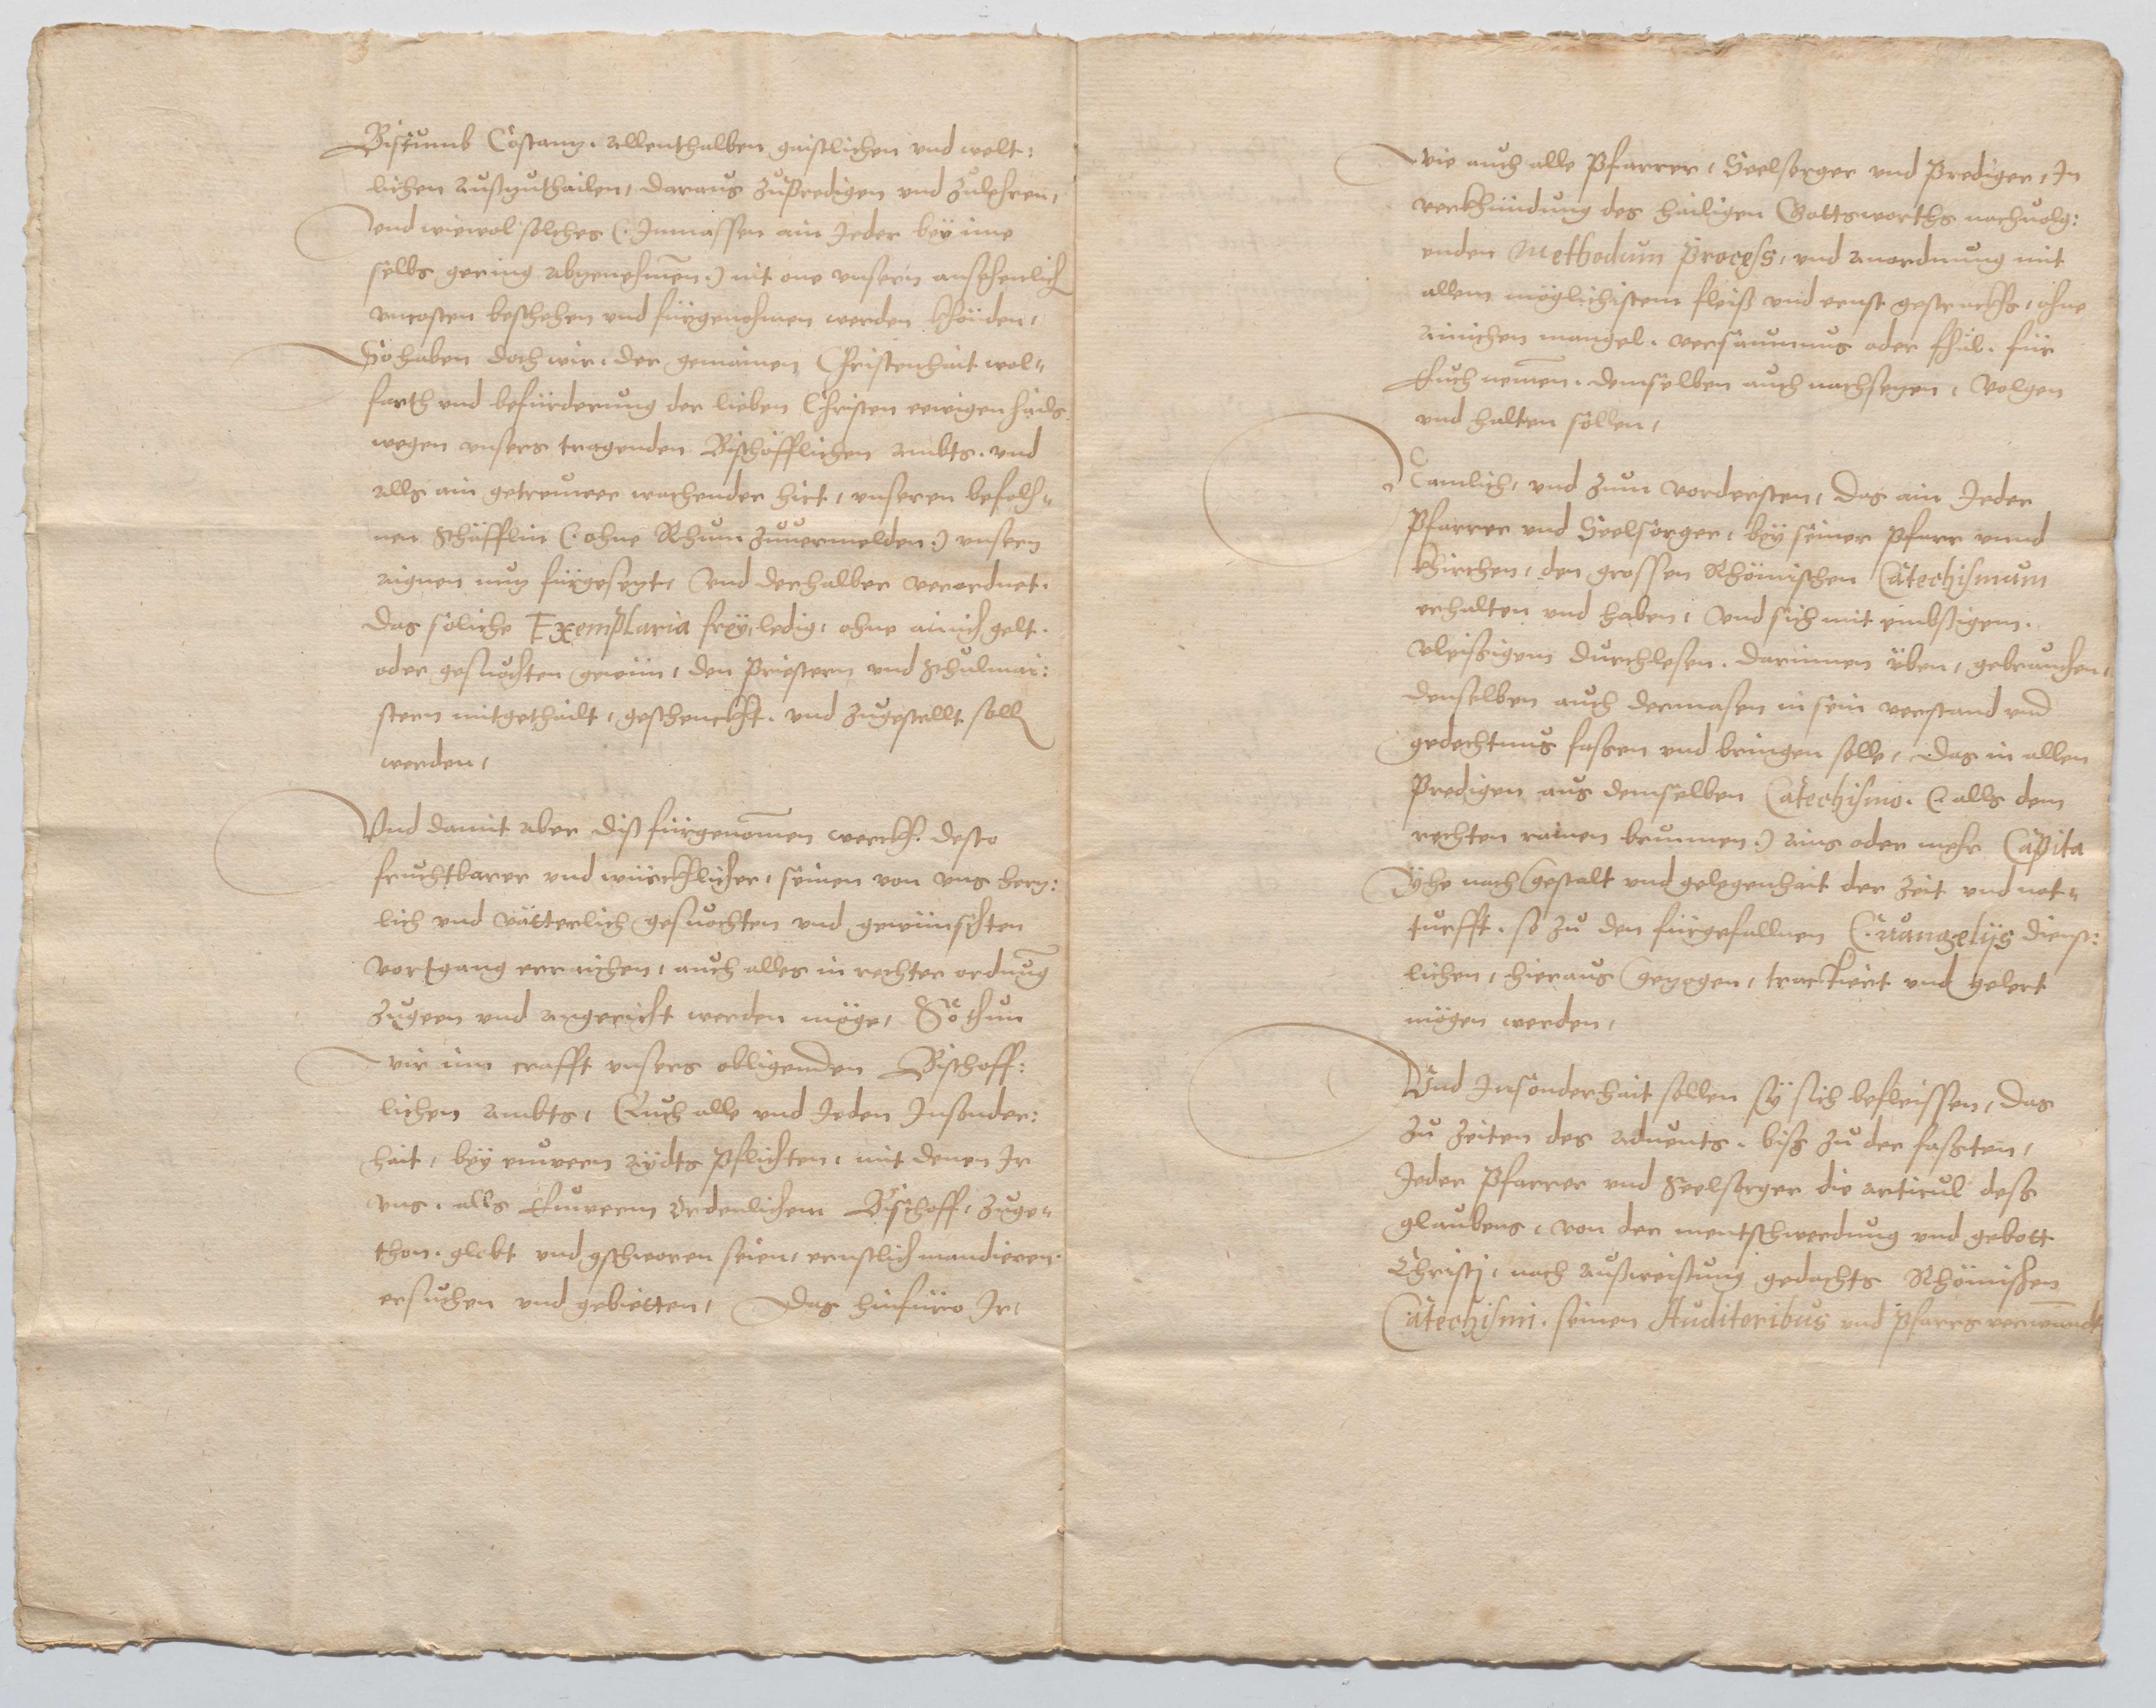 Bistumb Costanz. allenthalben gaistlichen und welt:
lichen außzuthailen, daraus zupredigen und zulehren,
Und wiewol solches (: Inmassen ain Jeder bey ime
selbs gering abzenehmen :) nit one unsern ansehenlich
uncosten beschehen und fürgenohmen werden khönden,
So haben doch wir. der gemainen Christenhait wol=
farth und befürderung der lieben Christen eewigen hails.
wegen unsers tragenden Bischöfflichen ambts. und
alls ain getreuwer wachender hirt, unseren befolh=
nen Schäfflin (: ohne Rhum zuuermelden :) unsern
aignen nuz fürgesezt, Und derhalber verordnet.
das soliche Exemplaria frey, ledig, ohne ainich gelt.
oder gesuochten gewün, den Priestern und Schulmai:
stern mitgethailt, geschenckht. und zugestellt soll
werden,
Und damit aber diß fürgenomen werckh. desto
fruchtbarer und würckhlicher, seinen von uns herz:
lich und vätterlich gesuochten und gewünschten
vortgang erraichen, auch alles in rechter ordnung
zugeen und angericht werden möge, So thun
wir inn crafft unsers obligenden Bischoff:
lichen ambts, Euch alle und Jeden Insonder:
hait, bey euweren aydts pflichten, mit denen Ir
uns. alls Euwerem Ordenlichem Bischoff, zuge=
thon. globt und gschworen seien, ernstlich mandieren.
ersuchen und gebietten, Das hinfüro Ir,
wie auch alle Pfarrer, Seelsorger und Prediger, In
verkhündung des hailigen Gottsworths nachuolg:
enden Methodum process, und anordnung mit
allem möglichistem fleiß und ernst gestrackhs, ohne
ainichen mangel. versaumnus oder fhäl. für
Euch nemen. demselben auch nachsezen, Volgen
und halten sollen,
Namlich, und zum vordersten, das ain Jeder
Pfarrer und Seelsorger, bey seiner Pfarr unnd
Khirchen, den grossen Rhömischen Catechismum
erhalten und haben, Und sich mit embßigem.
vleißigem durchlesen. darinnen üben, gebrauchen,
denselben auch dermasen in sein verstand und
gedechtnus fassen und bringen solle, das in allen
Predigen aus demselben Catechismo. (: alls dem
rechten rainen brunnen :) ains oder mehr Capita
Ihe nach Gestalt und gelegenhait der zeit und not=
turfft. so zu den fürgefallnen Euangelijs dienst:
lichen, hieraus Gezogen, tracktiert und gelert
mögen werden,
Und Insonderhait sollen sy sich befleissen, das
zu zeiten des aduents. biß zu der faßten,
Jeder Pfarrer und Seelsorger die articul deß
glaubens, von der mentschwerdung und gebott
Christj, nach außweisung gedachts Rhömischen
Catechismi. seinen Auditoribus und Pfarrsverwandt